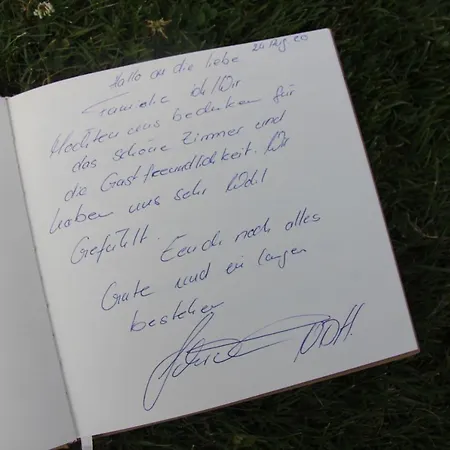 24 Aug. 20
Hallo an die liebe
Familie ich/Wir
Möchten uns bedanken für
das schöne Zimmer und
die Gastfreundlichkeit. Wir
haben uns sehr Wohl
Gefühlt.
Euch noch alles
Gute und ein langes
bestehen